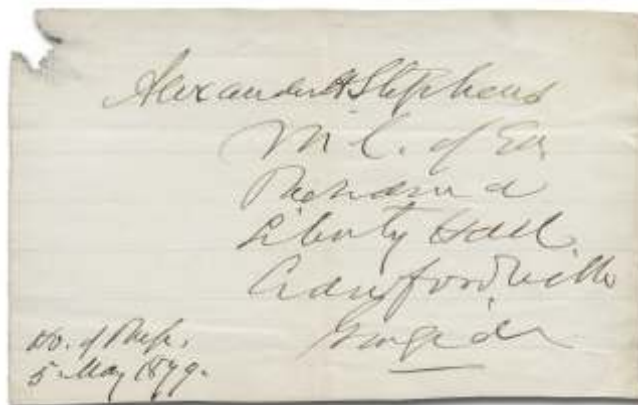 Alexander H Stephens
M. C. of Ga
Liberty Hall
Crawfordville
Georgia
Ho. of Reps.
5. May 1879.